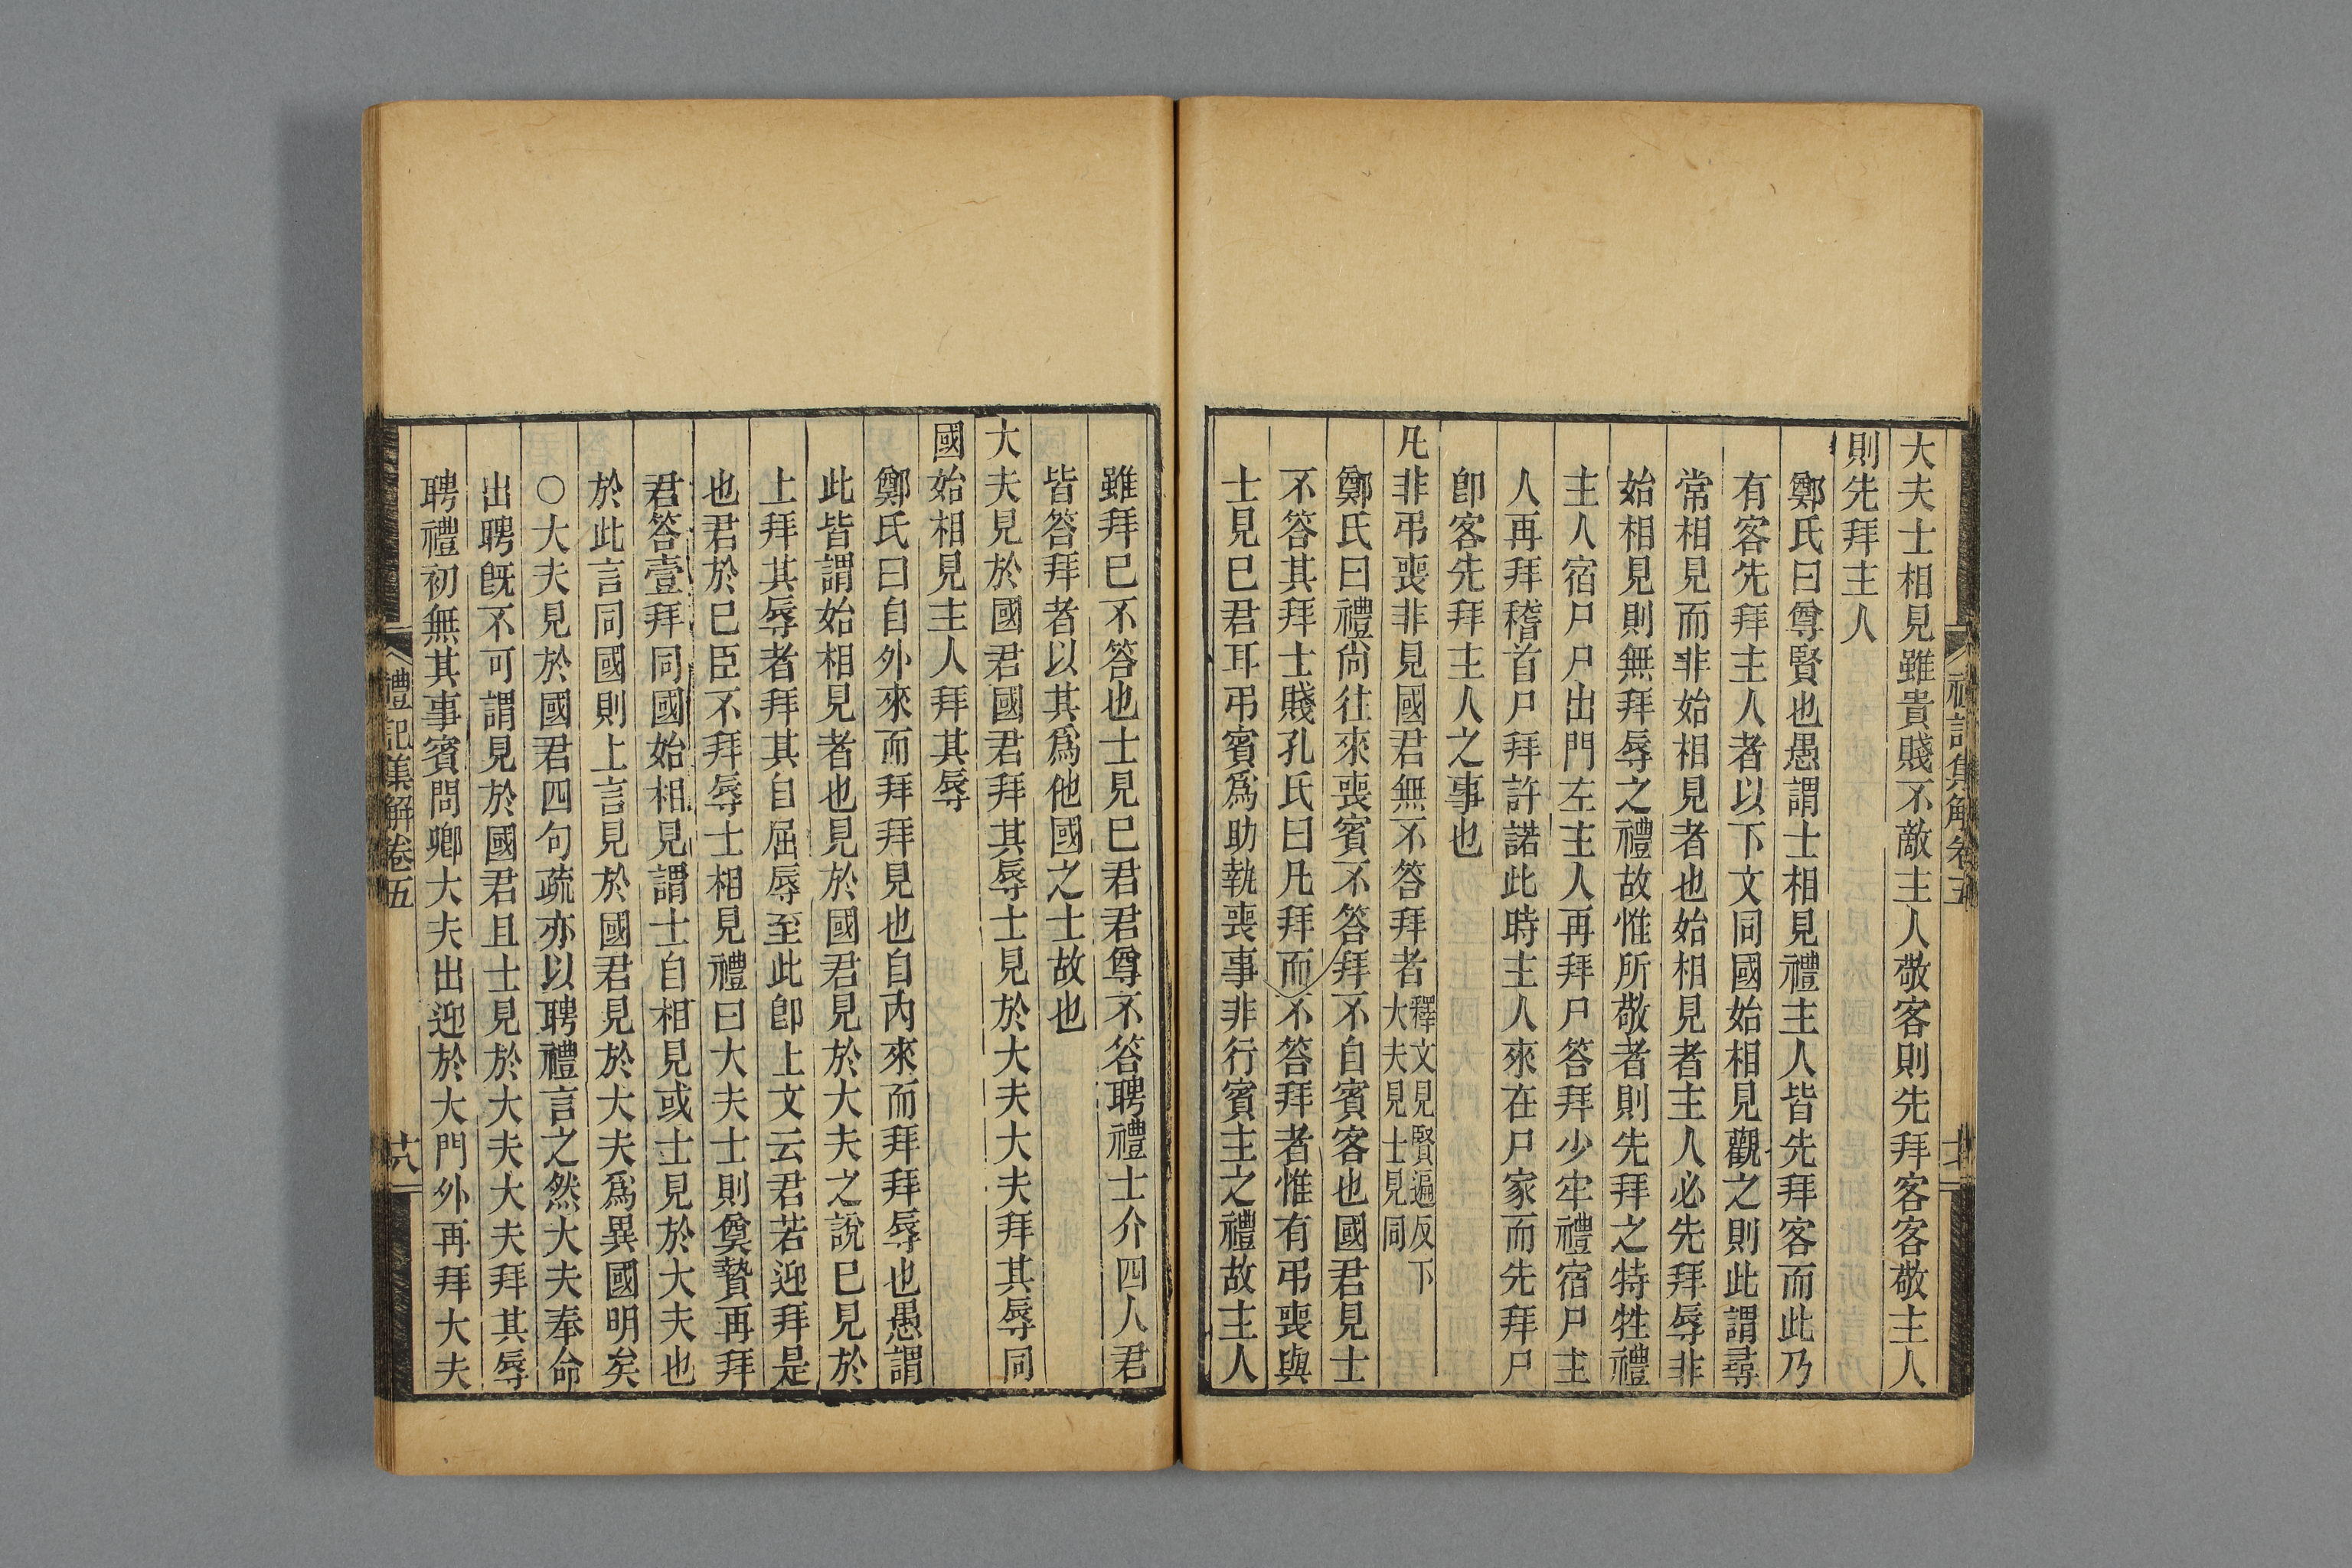 大夫士相見雖貴賤不敵主人敬客則先拜客客敬主人
則先拜主人
鄭氏曰尊賢也愚謂士相見禮主人皆先拜客而此乃
有客先拜主人者以下文同國始相見觀之則此謂尋
常相見而非始相見者也始相見者主人必先拜辱非
始相見則無拜辱之禮故惟所敬者則先拜之特牲禮
主人宿尸尸出門左主人再拜尸答拜少牢禮宿尸主
人再拜稽首尸拜許諾此時主人來在尸家而先拜尸
卽客先拜主人之事也
凡非弔喪非見國君無不答拜者釋文見賢遍反下
大夫見士見同
鄭氏曰禮尙往來喪賓不答拜不自賓客也國君見士
不答其拜士賤孔氏曰凡拜而不答拜者惟有弔喪與
士見已君耳弔賓爲助執喪事非行賓主之禮故主人
雖拜已不答也士見已君君尊不答聘禮士介四人君
皆答拜者以其爲他國之士故也
大夫見於國君國君拜其辱士見於大夫大夫拜其辱同
國始相見主人拜其辱
鄭氏曰自外來而拜拜見也自內來而拜拜辱也愚謂
此皆謂始相見者也見於國君見於大夫之說已見於
上拜其辱者拜其自屈辱至此卽上文云君若迎拜是
也君於已臣不拜辱士相見禮曰大夫士則奠贄再拜
君答壹拜同國始相見謂士自相見或士見於大夫也
於此言同國則上言見於國君見於大夫爲異國明矣
○大夫見於國君四句疏亦以聘禮言之然大夫奉命
出聘旣不可謂見於國君且士見於大夫大夫拜其辱
聘禮初無其事賓問卿大夫出迎於大門外再拜大夫
禮記集解卷五
十八